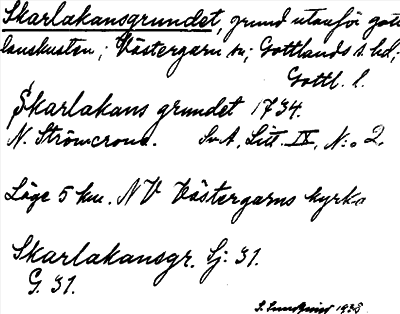 Skarlakansgrundet, grund utanför got-
landskusten; Västergarn sn; Gottlands s. hd;
Gottl. l.
Skarlakans grundet 1734.
N. Strömcrona. SvA, Litt. IX, N:o 2.
Läge 5 km. NV Västergarns kyrka
Skarlakansgr. Sj: 31.
G. 31.
S. Lundqvist 1938